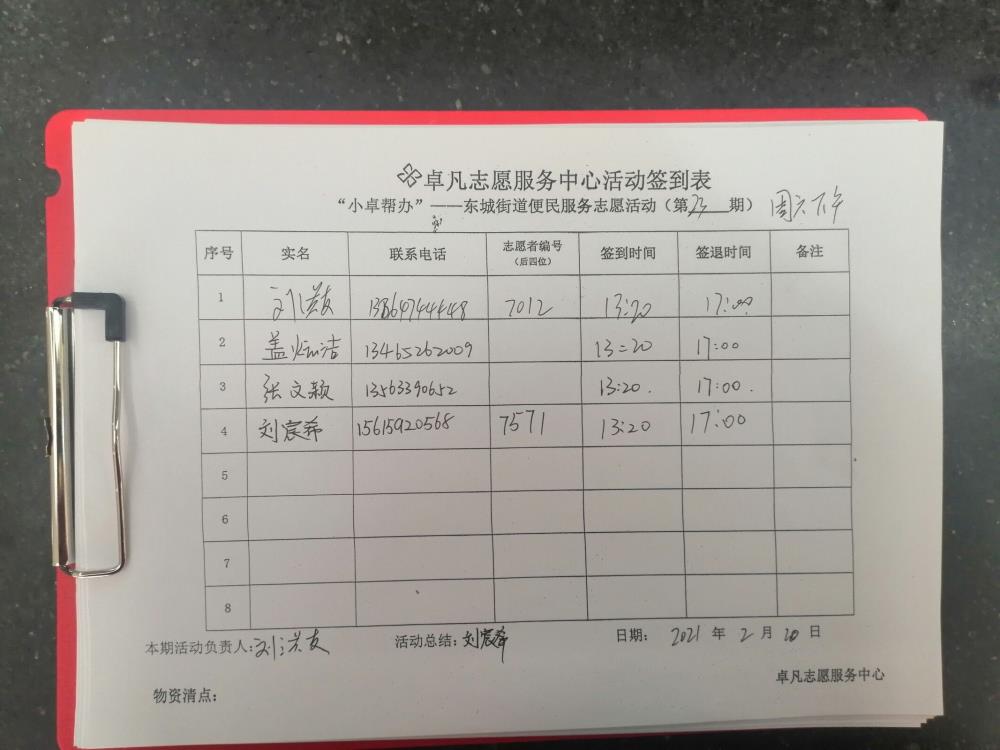 卓凡志愿服务中心活动签到表
“小卓帮办”——东城街道便民服务志愿活动（第23期） 周六下午
序号 实名 联系电话 志愿者编号（后四位） 签到时间 签退时间 备注
1 刘洪友 7012 13:20 17:00
2 盖 洁 13465262009 13:20 17:00
3 张文颖 13563390652 13:20. 17:00.
4 刘宸希 15615920568 7571 13:20 17:00
5
6
7
8
本期活动负责人:刘洪友 活动总结:刘宸希 日期: 2021年2月20日
卓凡志愿服务中心
物资清点: